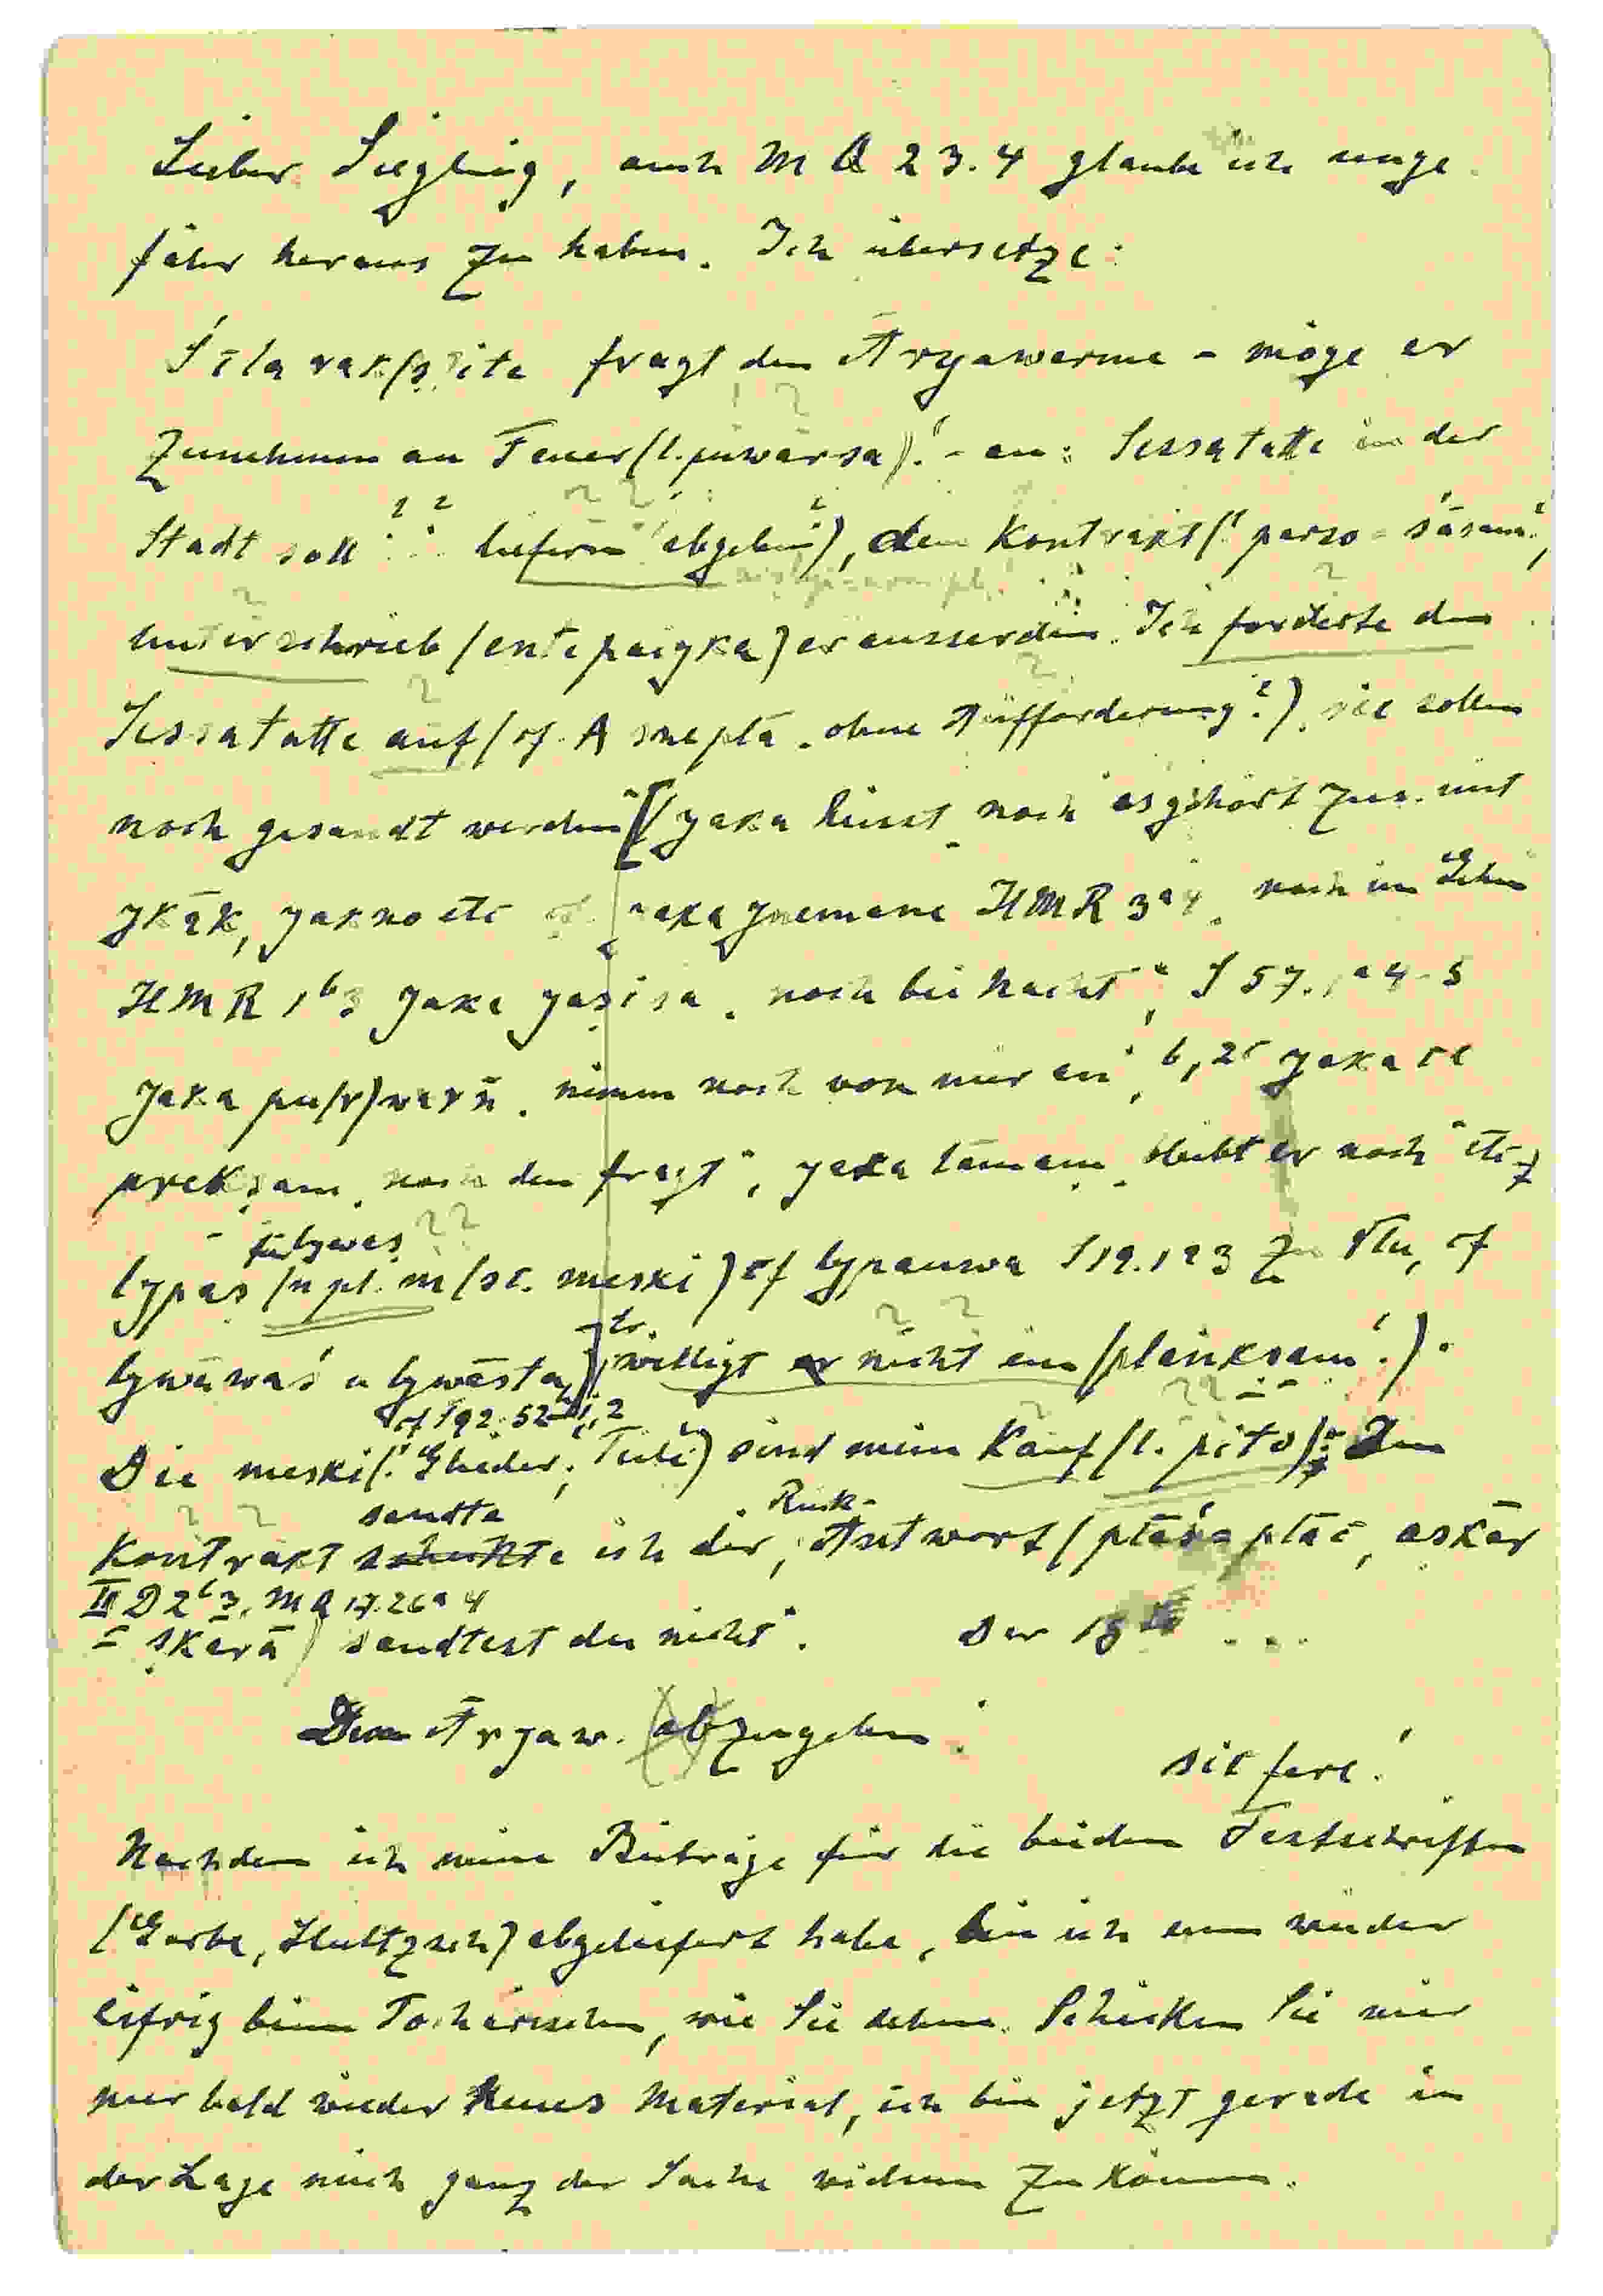 Lieber Siegling, auch M Q 23.4 glaube ich unge
fähr heraus zu haben. Ich übersetze:
fragt den Aryawarme - möge er
zunehmen an Feuer (l. puwarsa)! - an: Sessatatte in der
Stadt soll ? ? liefern (abgeben?), den Kontrakt (! perso = śāsana!,
unterschrieb (ente paiyka) er ausserdem. Ich forderte den
Sessatatte auf (cf. A snepla „ohne Aufforderung?). sie sollen
noch gesandt werden [(yaka heisst „noch" es gehört zus. mit
ykāk, yakno etc cf. yaka ynemane HMR 3a4 „noch im Gehn
HMR 1b3 yaka yaṣisa „noch bei Nacht", S 57.1a4-5
yaka pu(r)warñ „nimm noch von mir an", b, 25 yaka ce
prekṣam „noch den fragt", yaka lamam „bleibt er noch" etc;
lypas (n pl. m (sc. meski) cf lypauwa S 19.1a3 zu √lu, cf
lywāwaś u lywāsta)] willigt er nicht ein (plänkṣam!).
cf S92.52 1,2
Die meski (! Glieder; Teile) sind mein Kauf (l. pito)! Den
sandte Rück-
Kontrakt schickte ich dir, Antwort ( , askār
III D 2b3, M Q 17.26a4
= ṣkārā) sandtest du nicht". Der 15te ...
Dem Aryaw. abzugeben!
sic fere!
Nachdem ich meine Beiträge für die beiden Festschriften
(Garbe, Hultzsch) abgeliefert habe, bin ich nun wieder
eifrig beim Tocharischen, wie Sie sehen. Schicken Sie mir
nur bald wieder neues Material, ich bin jetzt gerade in
der Lage mich ganz der Sache widmen zu können.